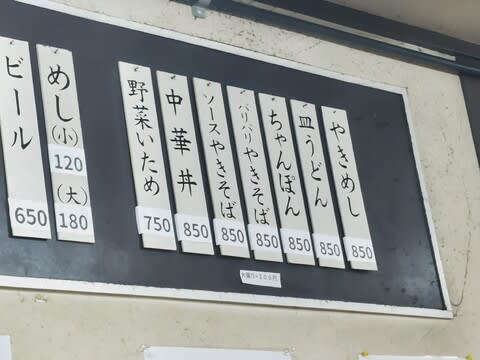 やきめし
850
皿うどん
850
ちゃんぽん
850
パリパリやきそば
850
ソースやきそば
850
中華丼
850
野菜いため
750
めし(小)
120
(大)
180
ビール
650
大盛り+100円